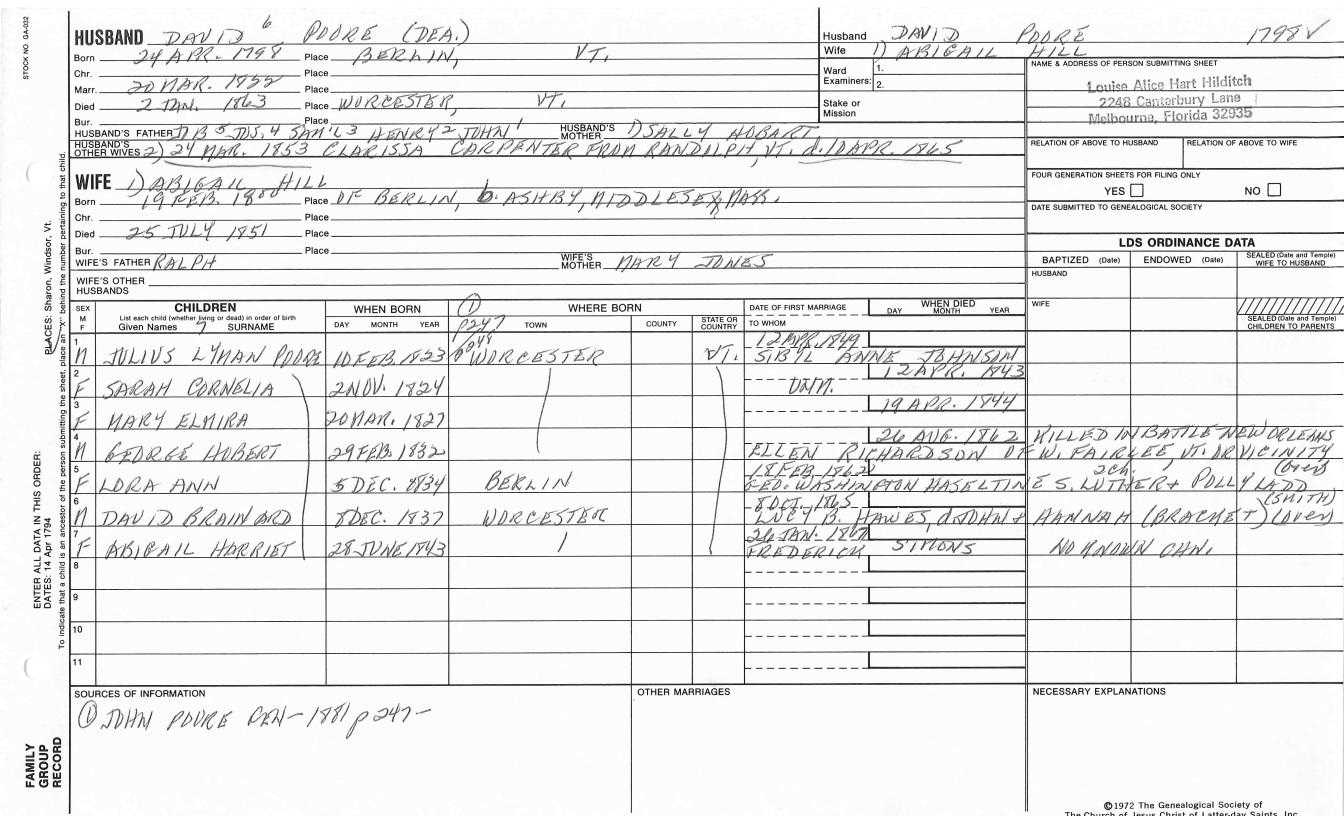 STOCK NO. GA-032
HUSBAND DAVID 6 POORE (DEA.)
Born 24 APR. 1798 Place BERLIN, VT.
Chr. Place
Marr. 20 MAR. 1822 Place
Died 2 JAN. 1863 Place WORCESTER, VT.
Bur. Place
HUSBAND'S FATHER 5 JOS, 4 SAM'L 3 HENRY 2 JOHN 1 HUSBAND'S MOTHER 1) SALLY HOBART
HUSBAND'S OTHER WIVES 2) 24 MAR. 1853 CLARISSA CARPENTER FROM RANDOLPH, VT. d. 10 APR. 1865
WIFE 1) ABIGAIL HILL
Born 19 FEB. 1800 Place OF BERLIN, b. ASHBY, MIDDLESEX, MASS.
Chr. Place
Died 25 JULY 1851 Place
Bur. Place
WIFE'S FATHER RALPH WIFE'S MOTHER MARY JONES
WIFE'S OTHER HUSBANDS
Husband DAVID POORE 1798 V
Wife 1) ABIGAIL HILL
Ward Examiners: 1.
2.
Stake or Mission
NAME & ADDRESS OF PERSON SUBMITTING SHEET
Louise Alice Hart Hilditch
2248 Canterbury Lane
Melbourne, Florida 32935
RELATION OF ABOVE TO HUSBAND RELATION OF ABOVE TO WIFE
FOUR GENERATION SHEETS FOR FILING ONLY
YES NO
DATE SUBMITTED TO GENEALOGICAL SOCIETY
LDS ORDINANCE DATA
BAPTIZED (Date) ENDOWED (Date) SEALED (Date and Temple) WIFE TO HUSBAND
HUSBAND
WIFE
SEALED (Date and Temple) CHILDREN TO PARENTS
SEX M F
CHILDREN
List each child (whether living or dead) in order of birth
Given Names 7 SURNAME
WHEN BORN
DAY MONTH YEAR
1 WHERE BORN
p247 TOWN COUNTY STATE OR COUNTRY
DATE OF FIRST MARRIAGE
TO WHOM
WHEN DIED
DAY MONTH YEAR
1 12 APR. 1849
M JULIUS LYMAN POORE 10 FEB. 1823 WORCESTER VT. SIBYL ANNE JOHNSON
2 12 APR. 1843
F SARAH CORNELIA 2 NOV. 1824 UNM.
3 19 APR. 1844
F MARY ELMIRA 20 MAR. 1827
4 26 AUG. 1862 KILLED IN BATTLE NEW ORLEANS
M GEORGE HOBERT 29 FEB. 1832 ELLEN RICHARDSON OF W. FAIRLEE VT. OR VICINITY
5 18 FEB. 1862 2ch. (over)
F LORA ANN 5 DEC. 1834 BERLIN GEO. WASHINGTON HASELTINE S. LUTHER + POLLY LADD
6 8 OCT. 1865 (SMITH)
M DAVID BRAINARD 8 DEC. 1837 WORCESTER LUCY B. HAWES, d. JOHN + HANNAH (BRACKET) (over)
7 26 JAN. 1867
F ABIGAIL HARRIET 28 JUNE 1843 FREDERICK SIMONS NO KNOWN CHN.
8
9
10
11
SOURCES OF INFORMATION
1 JOHN POORE GEN - 1881 p 247 -
OTHER MARRIAGES
NECESSARY EXPLANATIONS
©1972 The Genealogical Society of
The Church of Jesus Christ of Latter-day Saints, Inc.
ENTER ALL DATA IN THIS ORDER:
DATES: 14 Apr 1794
PLACES: Sharon, Windsor, Vt.
To indicate that a child is an ancestor of the person submitting the sheet, place an "X" behind the number pertaining to that child.
FAMILY GROUP RECORD